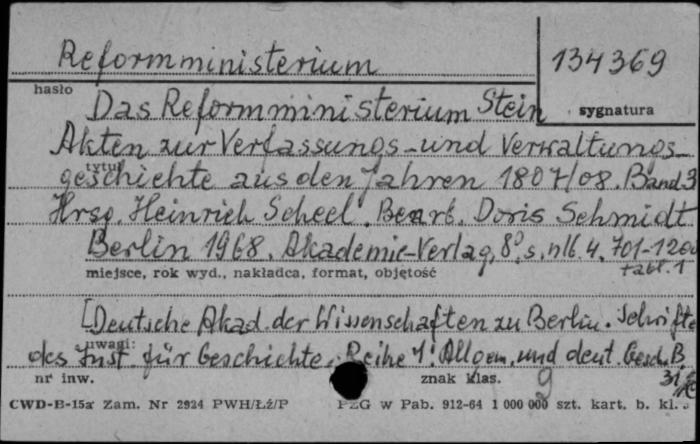 Reformministerium
134369
hasło
sygnatura
Das Reformministerium Stein
Akten zur Verfassungs- und Verwaltungs-
tytuł
geschichte aus den Jahren 1807/08. Band 3
Hrsg. Heinrich Scheel. Bearb. Doris Schmidt
Berlin 1968. Akademie-Verlag, 8°, s. nlb. 4, 701-1200
tabl. 1
miejsce, rok wyd., nakładca, format, objętość
[Deutsche Akad. der Wissenschaften zu Berlin. Schrifte
uwagi:
des Inst. für Geschichte. Reihe 1: Allgem. und deut. Gesch. B.
nr inw.
znak klas.
9
CWD-B-15a Zam. Nr 2924 PWH/Łź/P
PZG w Pab. 912-64 1 000 000 szt. kart. b. kl.